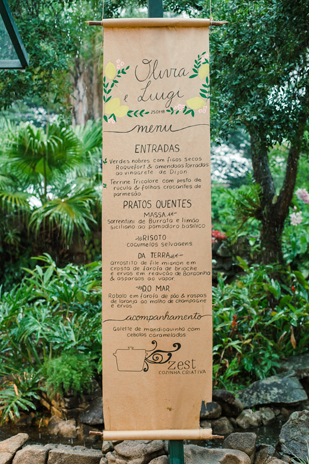 Olivia
e Luigi
menu
ENTRADAS
Verdes nobres com figos secos
Roquefort & amendoas torradas
ao vinagrete de Dijon
Terrine Tricolore com pesto de
rucula & folhas crocantes de
parmesão
PRATOS QUENTES
MASSA
Sorrentini de Burrata e limão
siciliano ao pomodoro basilico
RISOTO
cogumelos selvagens
DA TERRA
arrostito de file mignon em
crosta de farofa de brioche
e ervas em redução de
& aspargos ao vapor
DO MAR
Robalo em farofa de pão & raspas
de laranja ao molho de champagne
e ervas
acompanhamento
Galette de mandioquinha com
cebolas carameladas
zest
COZINHA CRIATIVA